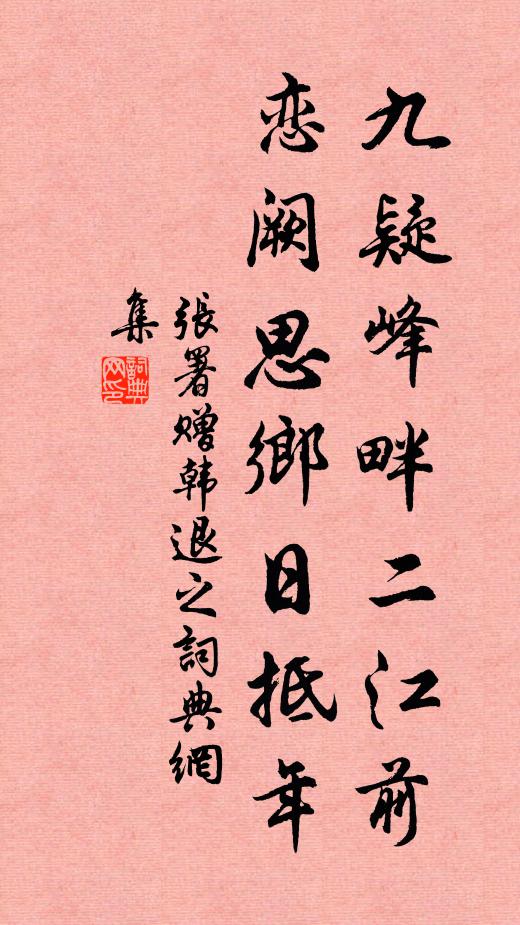 九疑峰畔二江前
恋阙思鄉日抵年
張署赠韩退之詞典網
集
詞典
网印